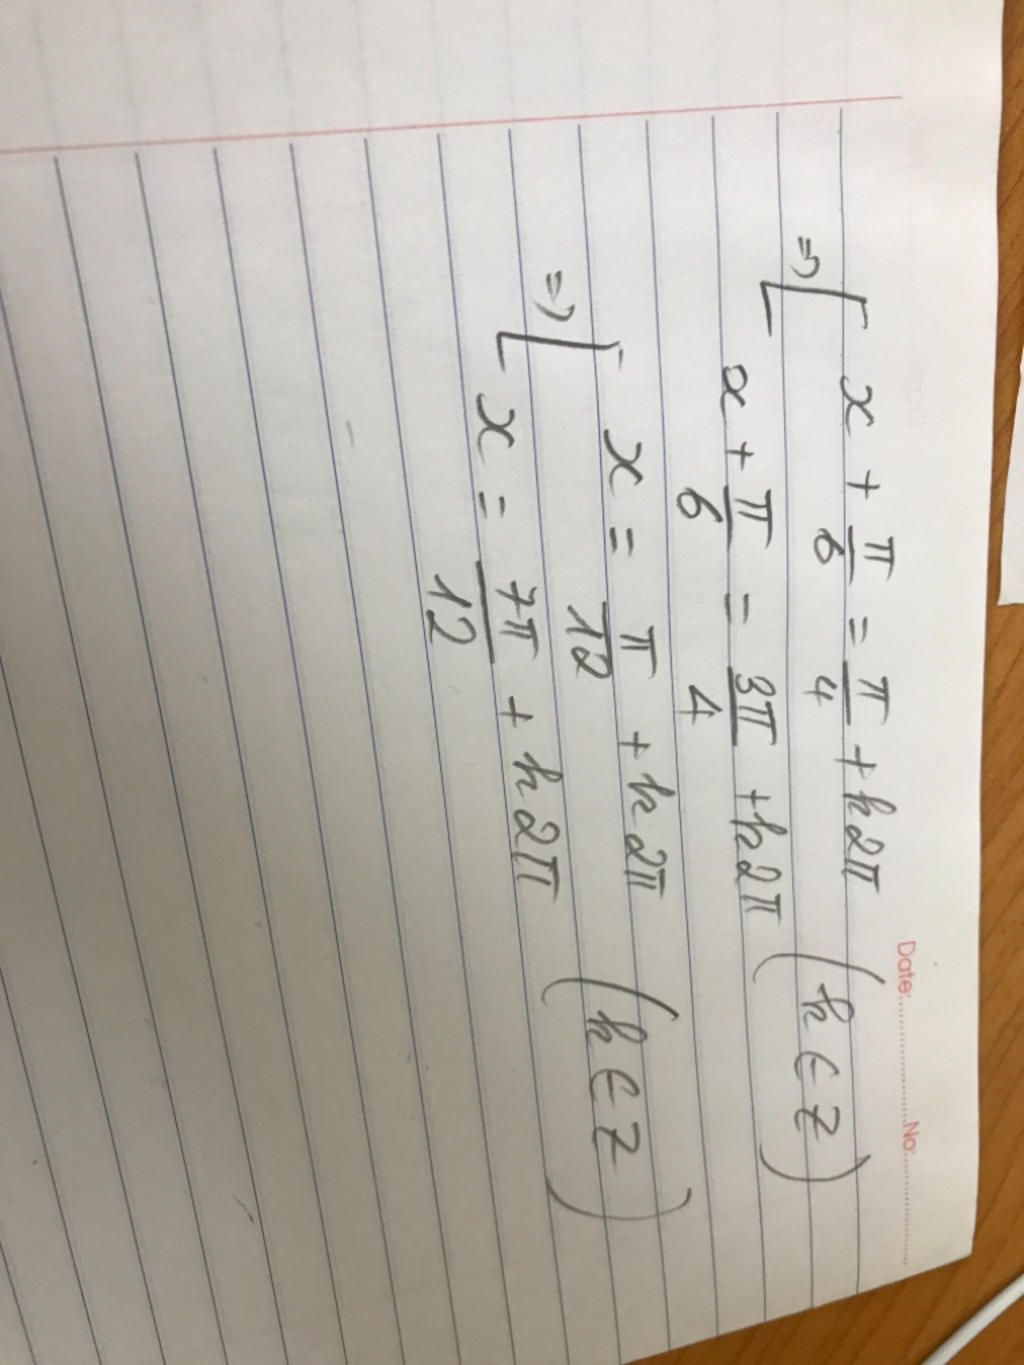 Date:....................No:....................
=> [ x + π/6 = π/4 + k2π
x + π/6 = 3π/4 + k2π (k ∈ Z)
=> [ x = π/12 + k2π
x = 7π/12 + k2π (k ∈ Z)